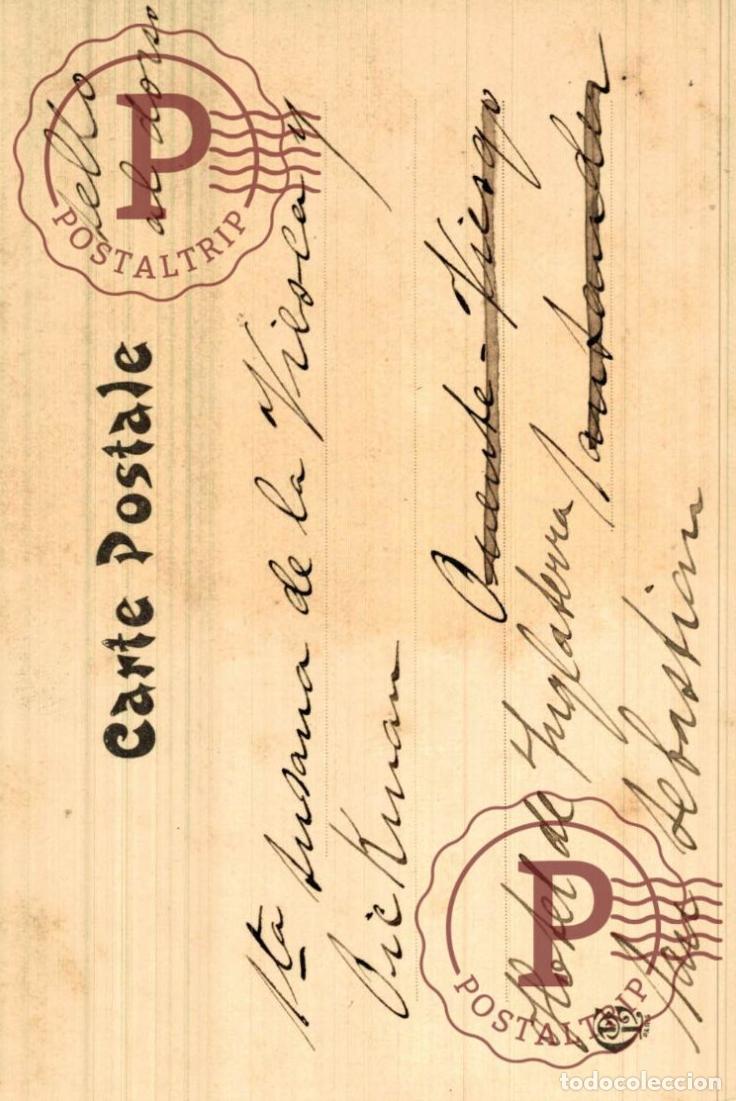 Sello
al dorso
Carte Postale
Sta Susana de la Viesca y
Pickman
Puente-Viesgo
Santander
Hotel de Inglaterra
San Sebastian
P
POSTALTRIP
P
POSTALTRIP
todocoleccion